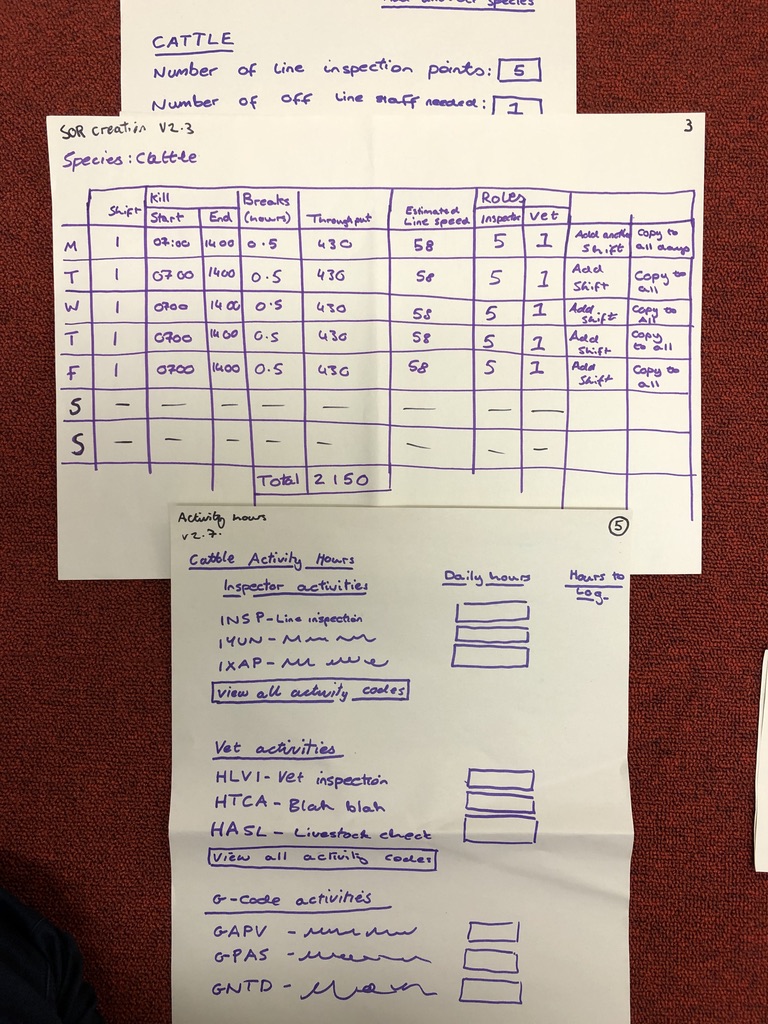 Add another species
CATTLE
Number of Line inspection points: 5
Number of off Line staff needed: 1
SOR creation V2.3 3
Species: Cattle
Kill Breaks (hours) Roles
Shift Start End Throughput Estimated Line speed Inspector Vet
M 1 07:00 1400 0.5 430 58 5 1 Add another Shift Copy to all days
T 1 0700 1400 0.5 430 58 5 1 Add Shift Copy to all
W 1 0700 1400 0.5 430 58 5 1 Add Shift Copy to All
T 1 0700 1400 0.5 430 58 5 1 Add Shift Copy to all
F 1 0700 1400 0.5 430 58 5 1 Add Shift Copy to all
S — — — — — — — —
S — — — — — — — —
Total 2150
Activity hours 5
V2.7.
Cattle Activity Hours
Inspector activities Daily hours Hours to Log.
INSP - Line inspection
IYUN -
IXAP -
View all activity codes
Vet activities
HLVI - Vet inspection
HTCA - Blah blah
HASL - Livestock check
View all activity codes
G-Code activities
GAPV -
GPAS -
GNTD -